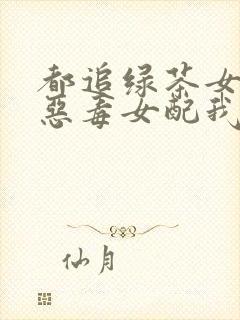 都追绿茶女
恶毒女配我
仙月